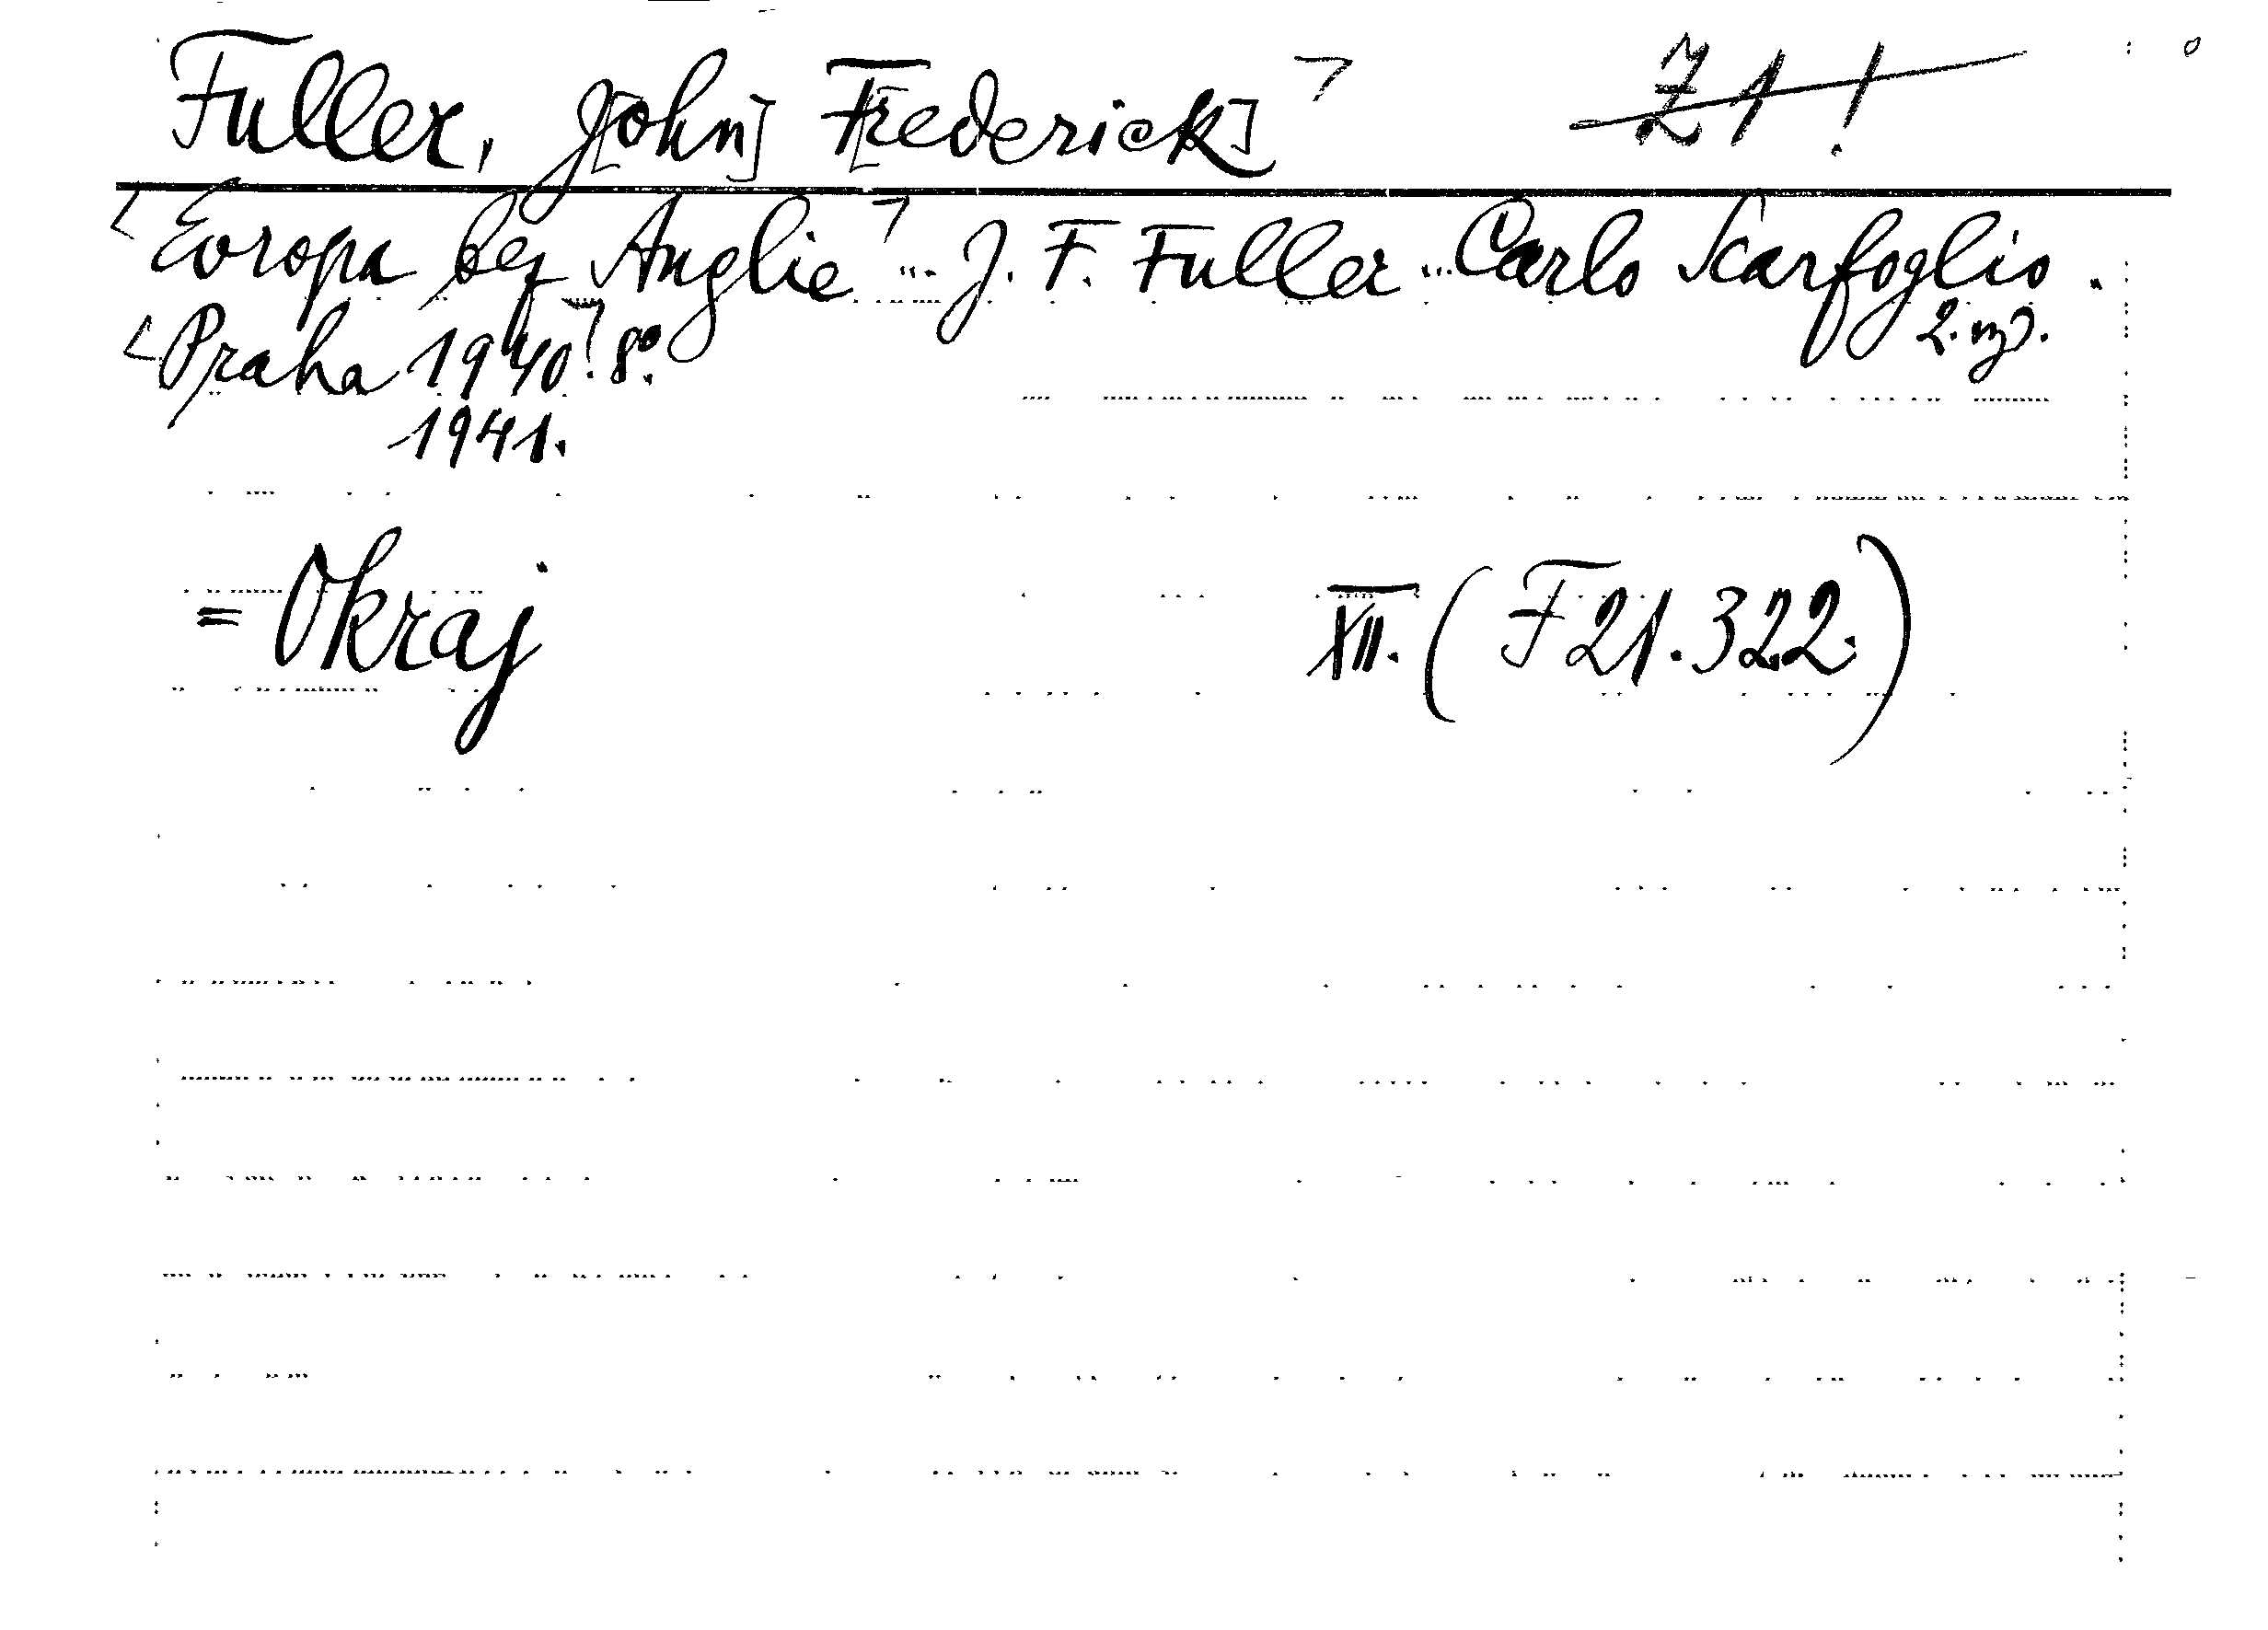 Fuller, J[ohn] F[rederick] Z1!
Evropa bez Anglie ... J. F. Fuller ... Carlo Scarfoglio.
Praha 1940. 8°. 2. vyd.
1941.
= Okraj XII. (F 21.322.)